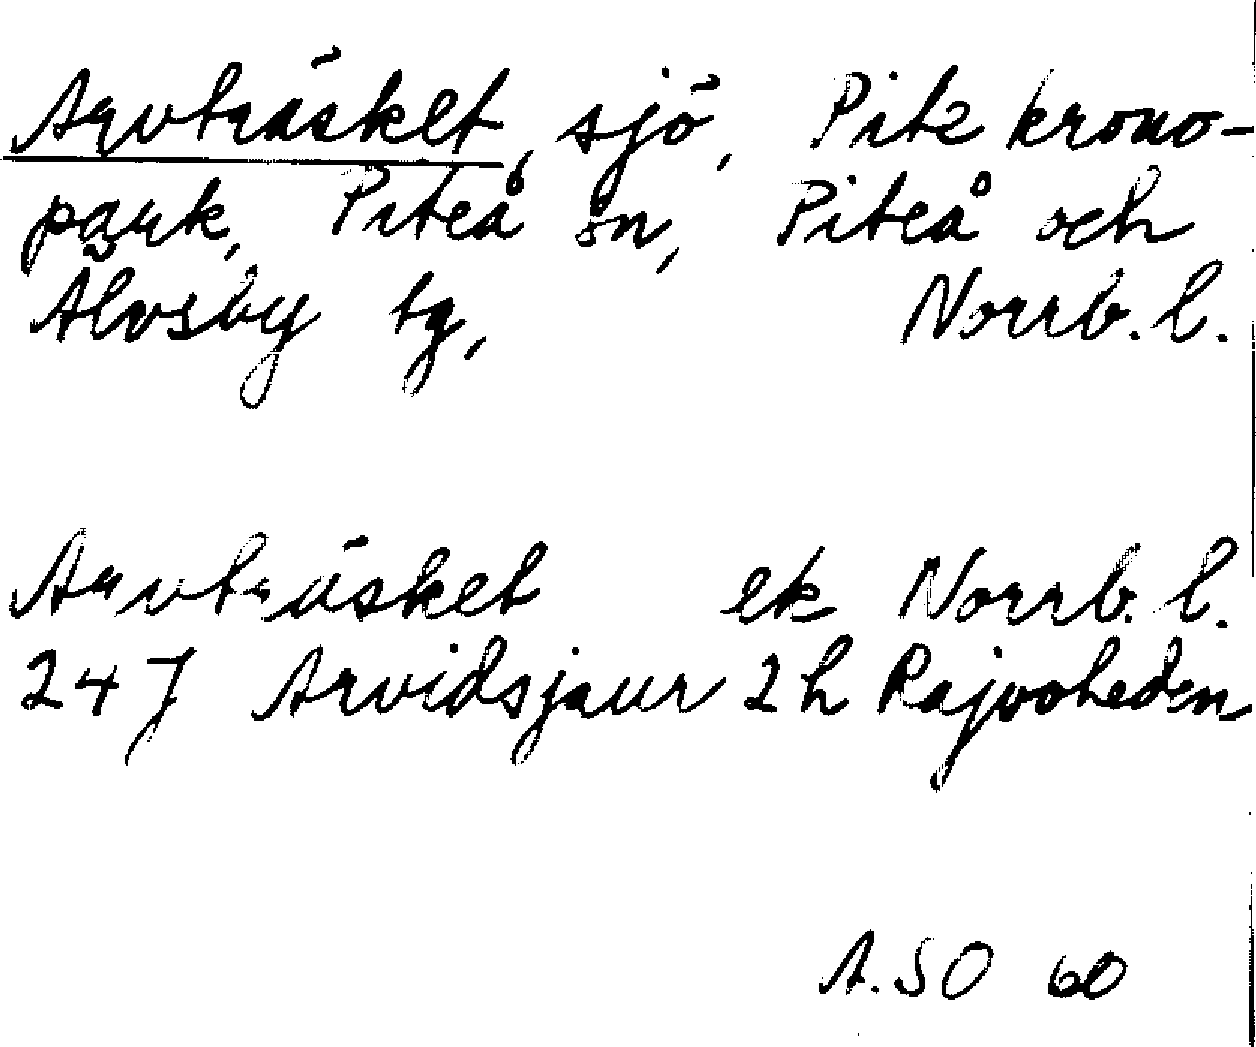 Arvträsket, sjö, Pite krono-
park, Piteå sn, Piteå och
Älvsby tg, Norrb. l.
Arvträsket ek Norrb. l.
24 J Arvidsjaur 2 h Rajvoheden
A. SO 60